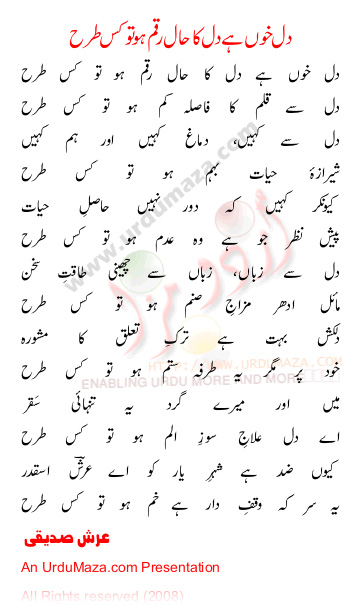 دل خوں ہے دل کا حال رقم ہو تو کس طرح
دل خوں ہے دل کا حال رقم ہو تو کس طرح
دل سے قلم کا فاصلہ کم ہو تو کس طرح
دل سے کہیں، دماغ کہیں اور ہم کہیں
شیرازۂ حیات بہم ہو تو کس طرح
کیونکر کہیں کہ دور نہیں حاصلِ حیات
پیشِ نظر جو ہے وہ عدم ہو تو کس طرح
دل سے زباں، زباں سے چھنی طاقتِ سخن
مائل ادھر مزاجِ صنم ہو تو کس طرح
دلکش بہت ہے ترکِ تعلق کا مشورہ
خود پر مگر یہ طرفہ ستم ہو تو کس طرح
میں اور میرے گرد یہ تنہائی سَقر
اے دل علاجِ سوزِ الم ہو تو کس طرح
کیوں ضد ہے شہرِ یار کو اے عرشؔ اسقدر
یہ سر کہ وقفِ دار ہے خم ہو تو کس طرح
عرش صدیقی
An UrduMaza.com Presentation
All Rights reserved (2008)
www.urdumaza.com
اردو مزا
HTTP://WWW.URDUMAZA.COM
ENABLING URDU MORE AND MORE